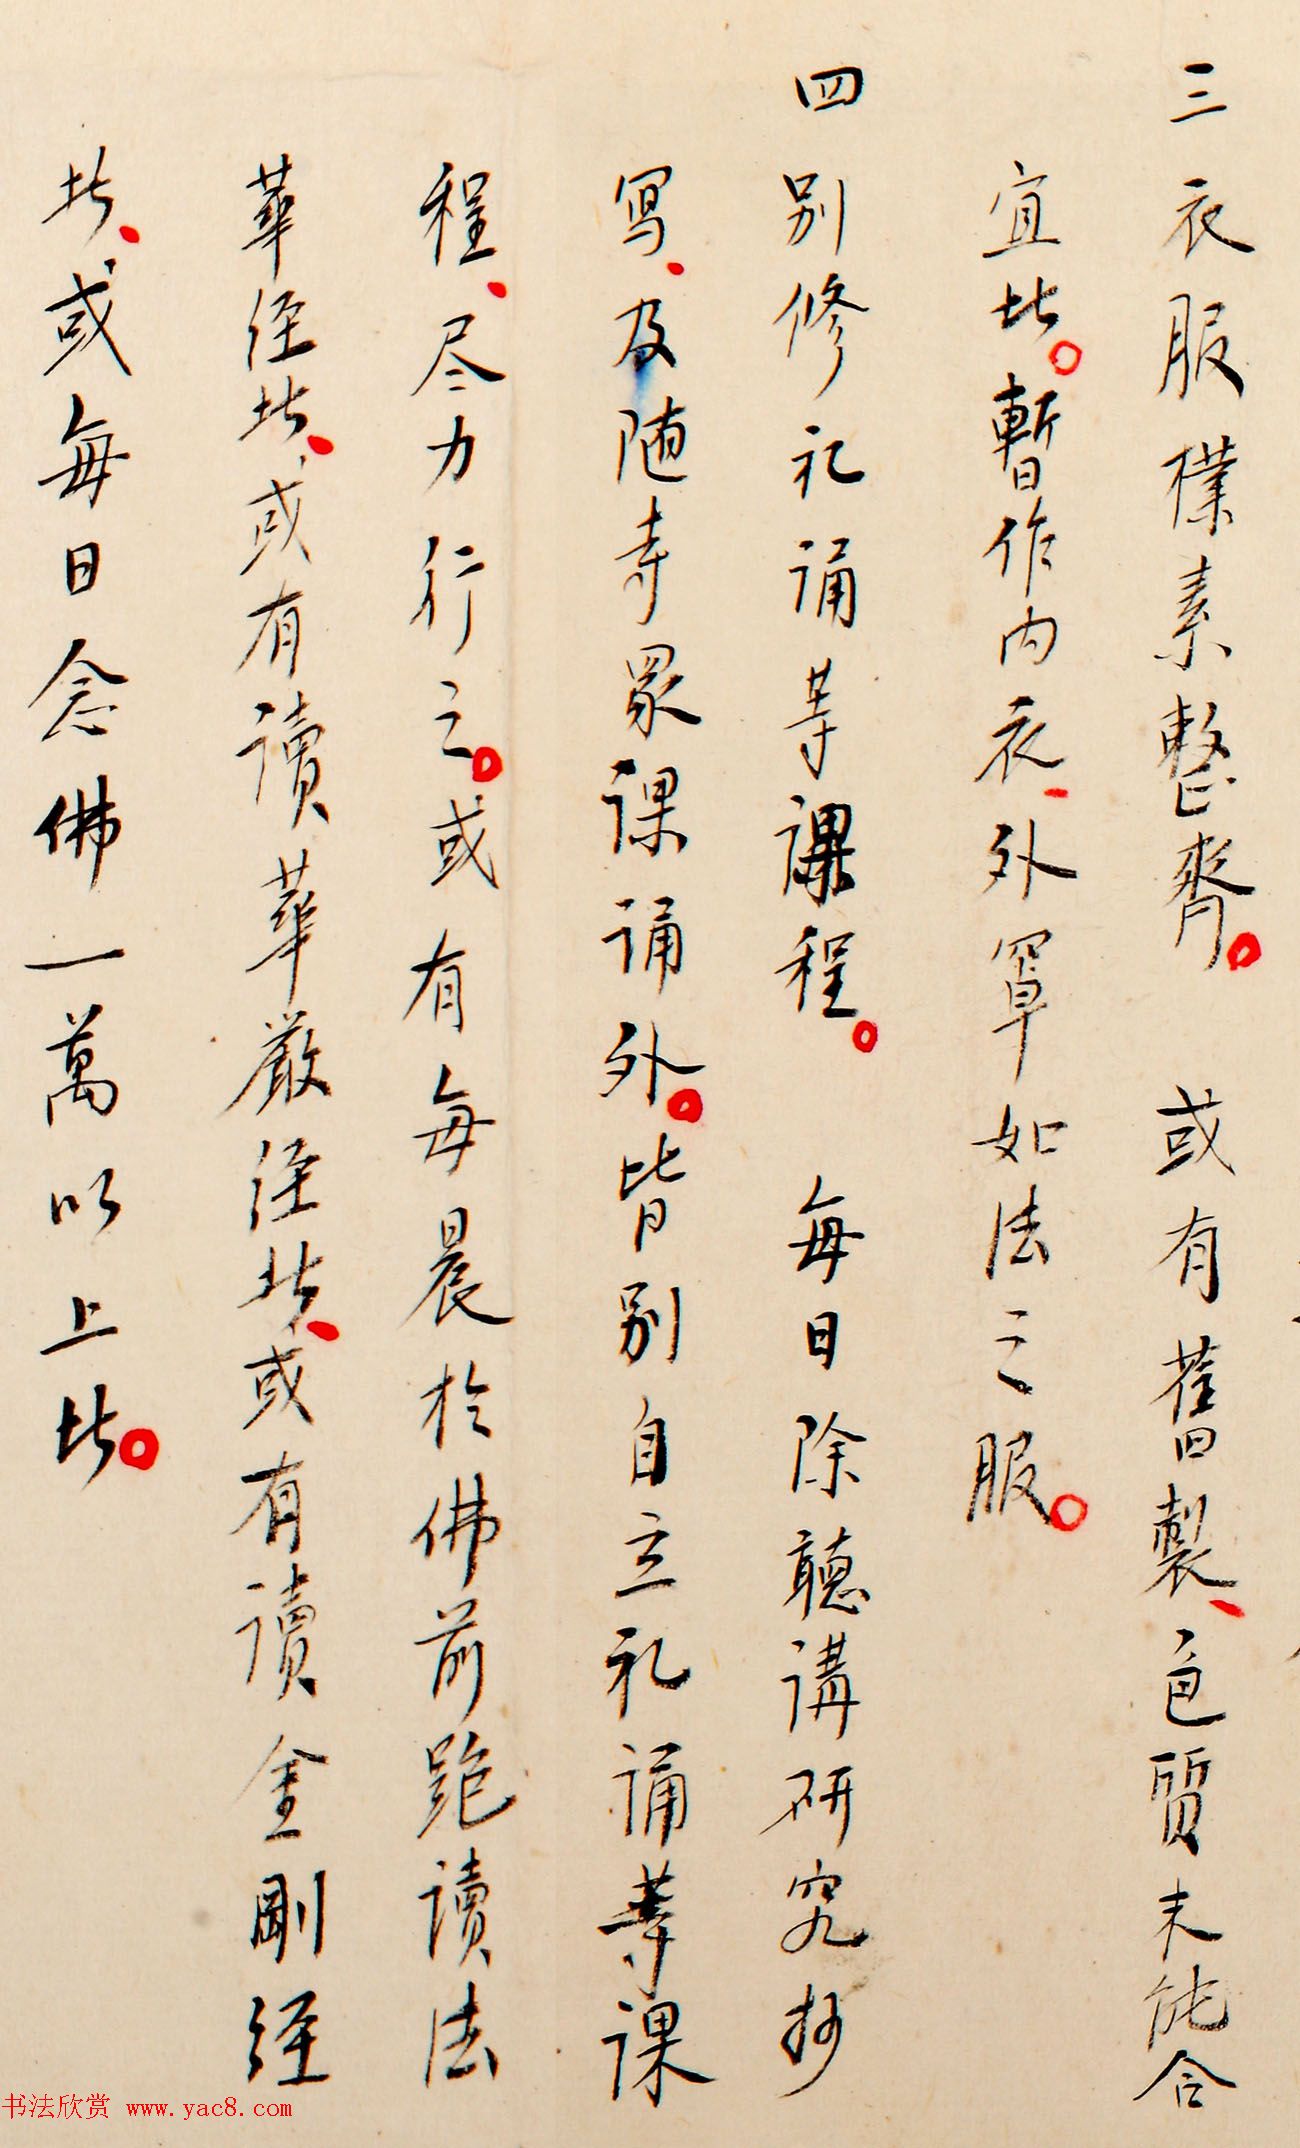 三 衣服樸素整齊。 或有舊製、色質未能合
宜者。暫作內衣、外罩如法之服。
四 別修礼誦等課程。 每日除聽講研究抄
寫、及随寺眾課誦外。皆別自立礼誦等課
程、尽力行之。或有每晨於佛前跪讀法
華経者、或有讀華嚴経者、或有讀金剛経
者、或每日念佛一萬以上者。
书法欣赏 www.yac8.com